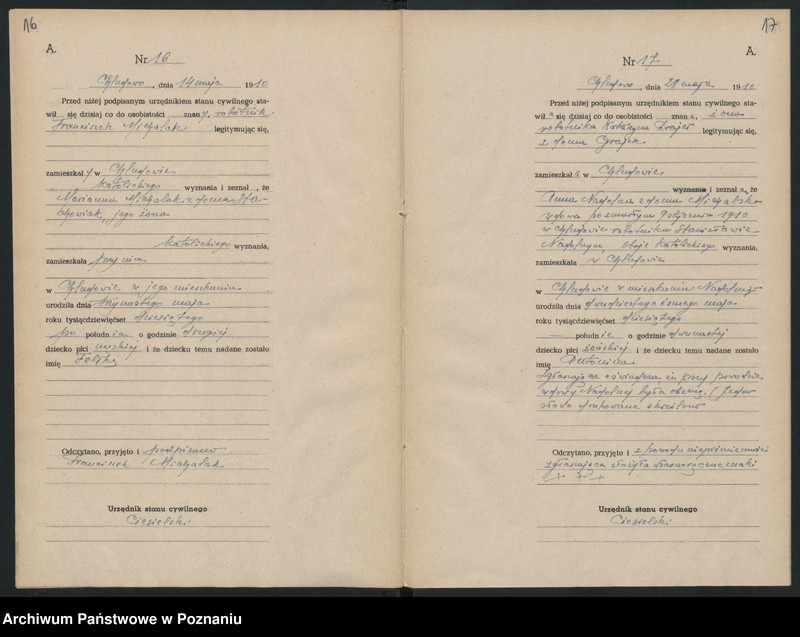 16
A.
Nr 16
Chludowo, dnia 14 maja 1910
Przed niżej podpisanym urzędnikiem stanu cywilnego sta-
wił się dzisiaj co do osobistości znany, robotnik
Franciszek Michalak legitymując się,
zamieszkały w Chludowie
katolickiego wyznania i zeznał, że
Marianna Michalak z domu
jego żona
katolickiego wyznania,
zamieszkała przy nim
w Chludowie w jego mieszkaniu
urodziła dnia maja
roku tysiącdziewięćset dziesiątego
po południu o godzinie drugiej
dziecko płci męskiej i że dziecku temu nadane zostało
imię Feliks
Odczytano, przyjęto i podpisano
Franciszek Michalak
Urzędnik stanu cywilnego
Ciesielski
17
A.
Nr 17
Chludowo, dnia 28 maja 1910
Przed niżej podpisanym urzędnikiem stanu cywilnego sta-
wiła się dzisiaj co do osobistości znana, żona
robotnika Katarzyna legitymując się,
z domu
zamieszkała w Chludowie
wyznania i zeznała, że
Anna z domu Michalska
wdowa po zmarłym 9 stycznia 1910
w Chludowie robotniku Stanisławie
katolickiego wyznania,
zamieszkała w Chludowie
w Chludowie w mieszkaniu
urodziła dnia dwudziestego ósmego maja
roku tysiącdziewięćset dziesiątego
południe o godzinie dwunastej
dziecko płci żeńskiej i że dziecku temu nadane zostało
imię
Zgłaszająca oświadcza że przy porodzie
wdowy była obecną. (Jedno
słowo drukowane skreślono
Odczytano, przyjęto i z powodu niepiśmienności
zgłaszająca złożyła własnoręczne znaki
+ + +
Urzędnik stanu cywilnego
Ciesielski
Archiwum Państwowe w Poznaniu